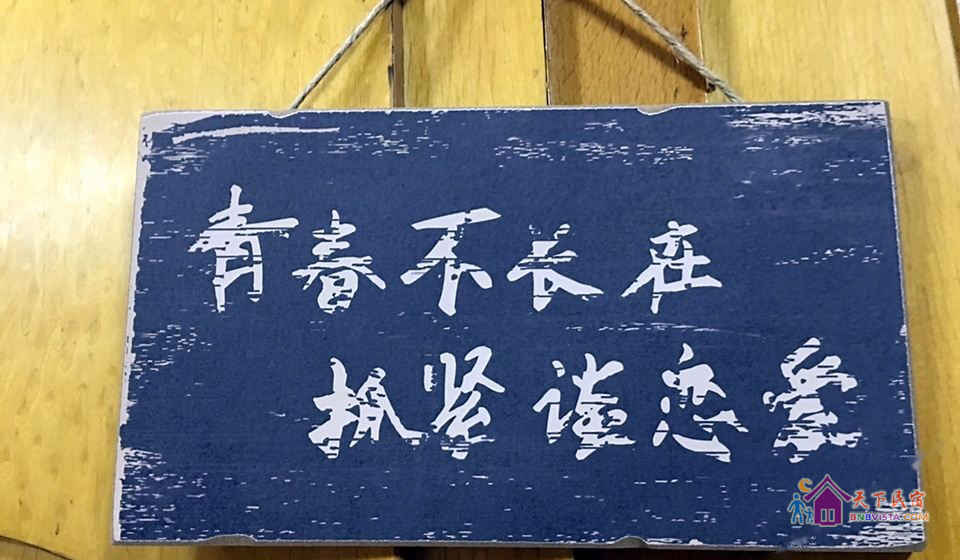 青春不长在
抓紧谈恋爱
天下民宿
BNBVISTA.COM